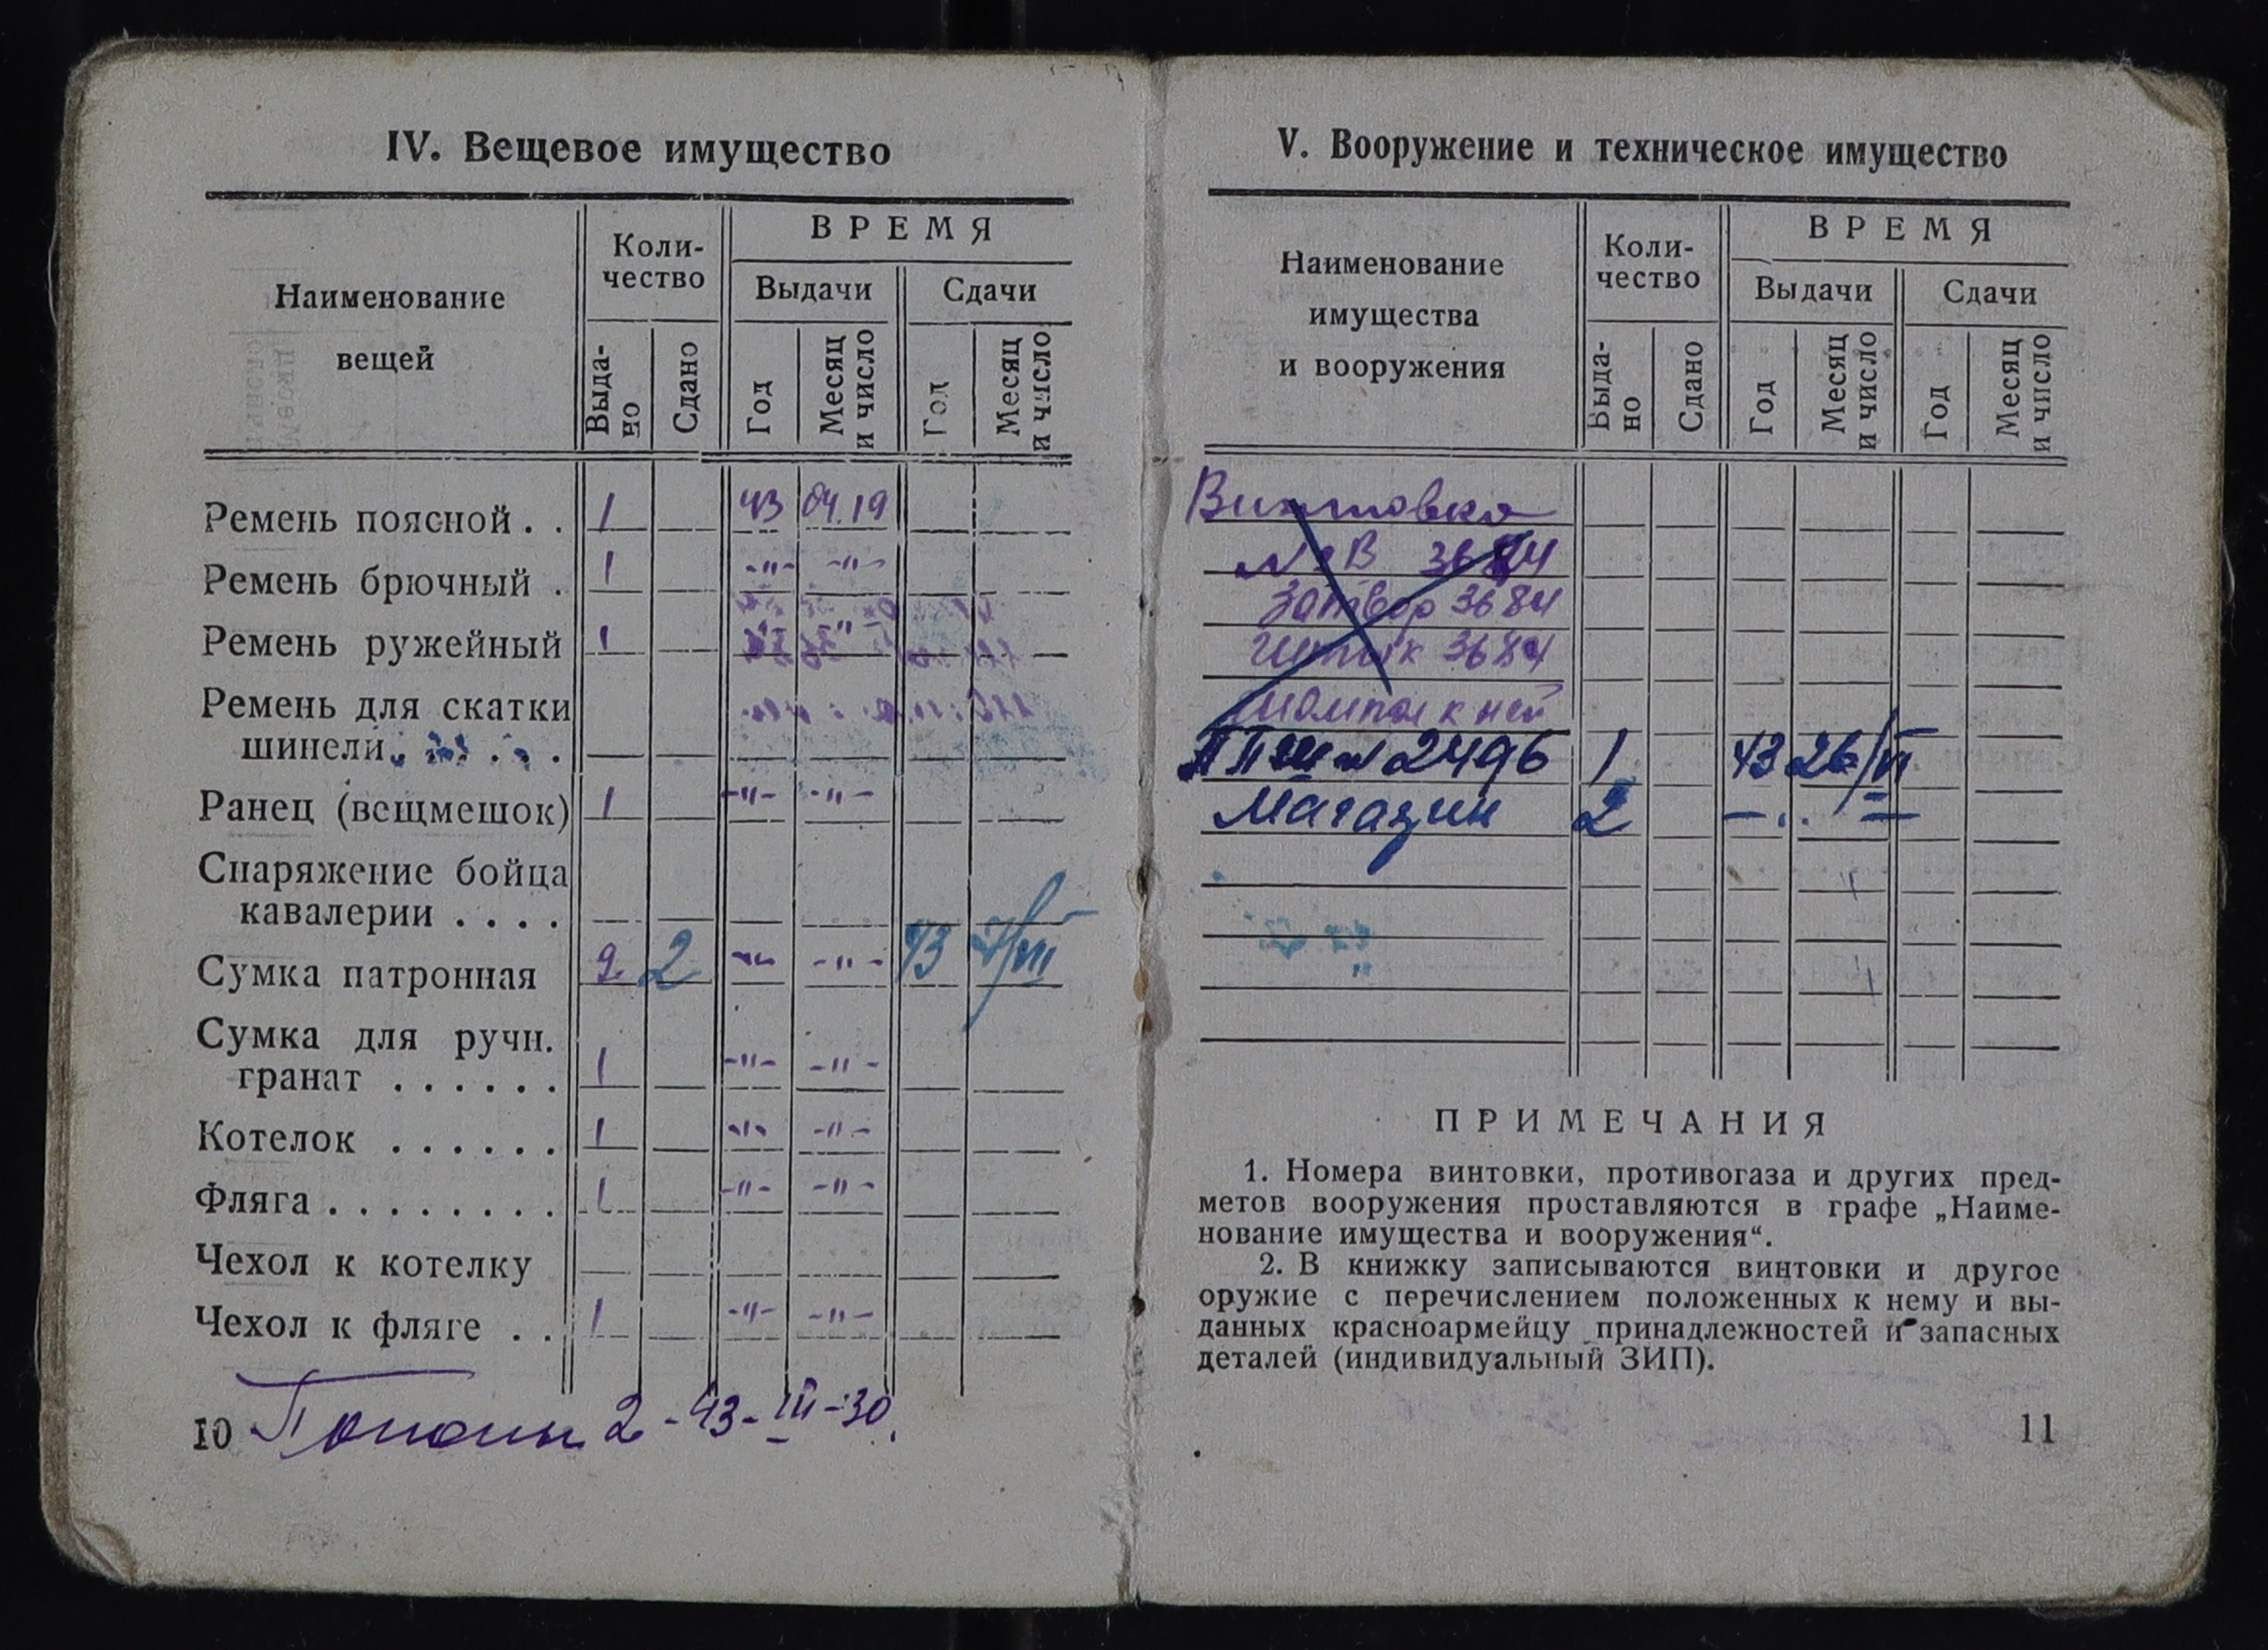 IV. Вещевое имущество
Наименование вещей
Коли-
чество
ВРЕМЯ
Выдачи
Сдачи
Выда-
но
Сдано
Год
Месяц
и число
Год
Месяц
и число
Ремень поясной . . 1 43 04.19
Ремень брючный . 1 -"- -"-
Ремень ружейный 1
Ремень для скатки
шинели . . .
Ранец (вещмешок) 1 -"- -"-
Снаряжение бойца
кавалерии . . . .
Сумка патронная 2 2 -"- -"- 43 7/VII
Сумка для ручн.
гранат . . . . . . 1 -"- -"-
Котелок . . . . . . 1 -"- -"-
Фляга . . . . . . . . 1 -"- -"-
Чехол к котелку
Чехол к фляге . . 1 -"- -"-
10 2-43-III-30.
V. Вооружение и техническое имущество
Наименование
имущества
и вооружения
Коли-
чество
ВРЕМЯ
Выдачи
Сдачи
Выда-
но
Сдано
Год
Месяц
и число
Год
Месяц
и число
Винтовка
№ В 3684
Затвор 3684
Штык 3684
Шомпол к ней
ППШ № 2496 1 43 26/VI
Магазин 2 -"-
ПРИМЕЧАНИЯ
1. Номера винтовки, противогаза и других пред-
метов вооружения проставляются в графе „Наиме-
нование имущества и вооружения“.
2. В книжку записываются винтовки и другое
оружие с перечислением положенных к нему и вы-
данных красноармейцу принадлежностей и запасных
деталей (индивидуальный ЗИП).
11